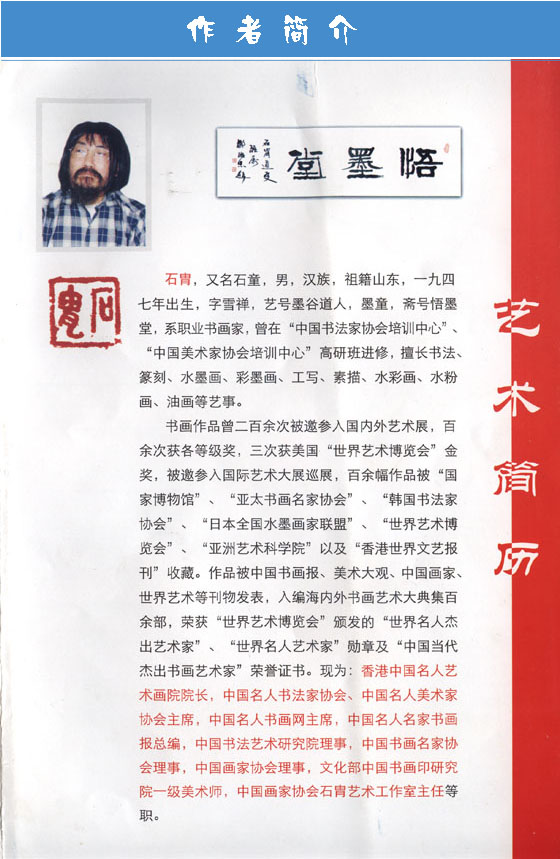 作者简介
悟墨堂
石胄
石胄，又名石童，男，汉族，祖籍山东，一九四
七年出生，字雪禅，艺号墨谷道人，墨童，斋号悟墨
堂，系职业书画家，曾在“中国书法家协会培训中心”、
“中国美术家协会培训中心”高研班进修，擅长书法、
篆刻、水墨画、彩墨画、工写、素描、水彩画、水粉
画、油画等艺事。
书画作品曾二百余次被邀参入国内外艺术展，百
余次获各等级奖，三次获美国“世界艺术博览会”金
奖，被邀参入国际艺术大展巡展，百余幅作品被“国
家博物馆”、“亚太书画名家协会”、“韩国书法家
协会”、“日本全国水墨画家联盟”、“世界艺术博
览会”、“亚洲艺术科学院”以及“香港世界文艺报
刊”收藏。作品被中国书画报、美术大观、中国画家、
世界艺术等刊物发表，入编海内外书画艺术大典集百
余部，荣获“世界艺术博览会”颁发的“世界名人杰
出艺术家”、“世界名人艺术家”勋章及“中国当代
杰出书画艺术家”荣誉证书。现为：香港中国名人艺
术画院院长，中国名人书法家协会、中国名人美术家
协会主席，中国名人书画网主席，中国名人名家书画
报总编，中国书法艺术研究院理事，中国书画名家协
会理事，中国画家协会理事，文化部中国书画印研究
院一级美术师，中国画家协会石胄艺术工作室主任等
职。
艺术简历